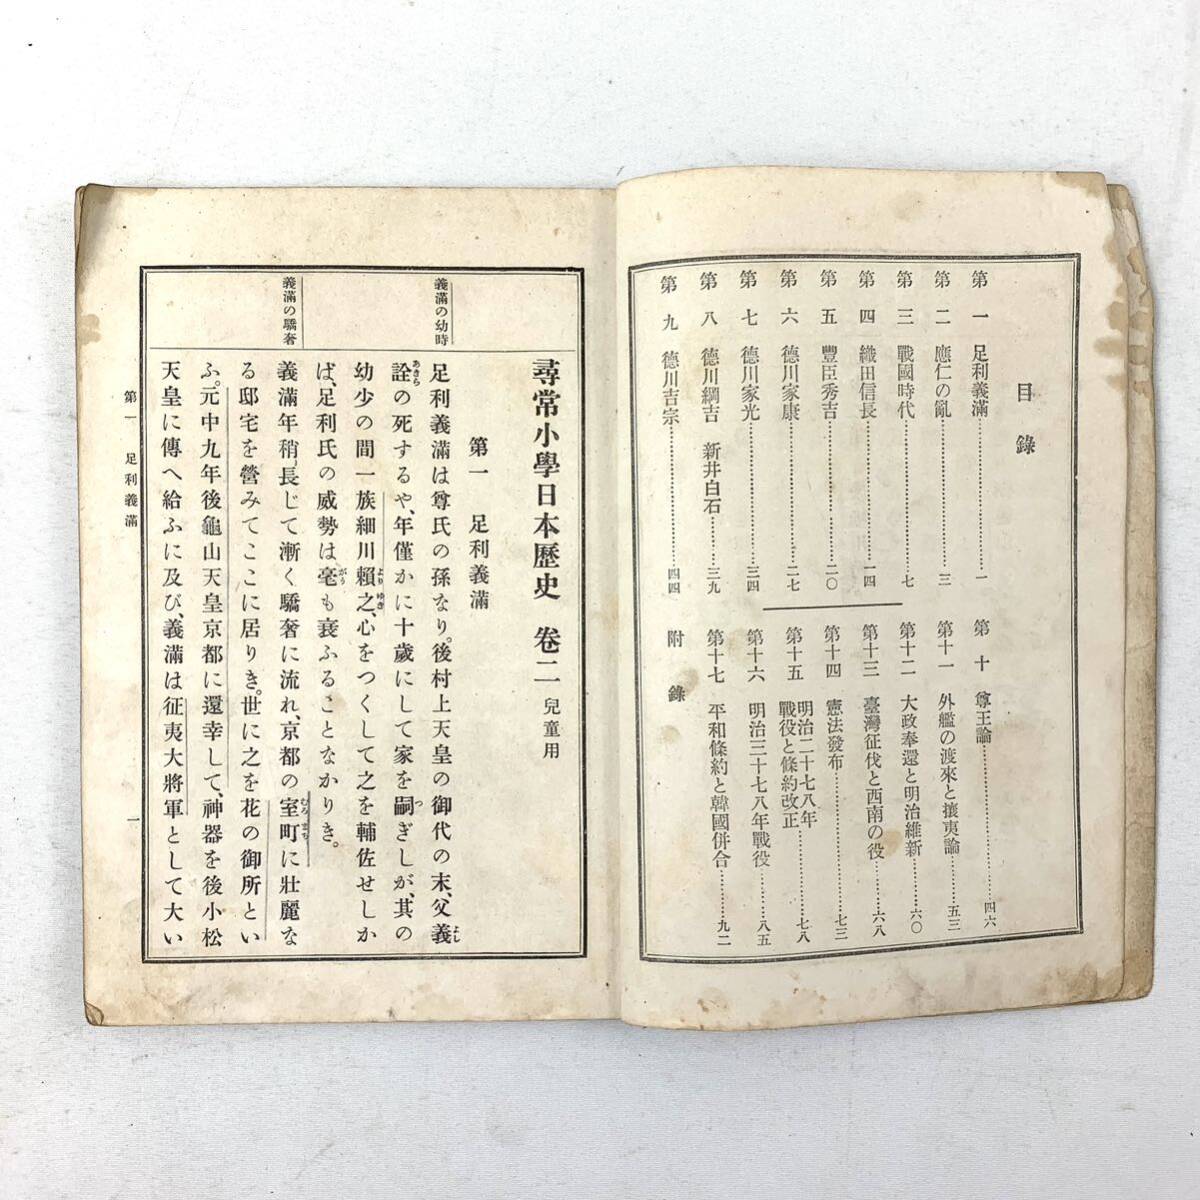 目錄
第一 足利義滿………一
第二 應仁の亂………三
第三 戰國時代………七
第四 織田信長………一四
第五 豐臣秀吉………二〇
第六 德川家康………二七
第七 德川家光………三四
第八 德川綱吉 新井白石………三九
第九 德川吉宗………四四
第十 尊王論………四六
第十一 外艦の渡來と攘夷論………五三
第十二 大政奉還と明治維新………六〇
第十三 臺灣征伐と西南の役………六八
第十四 憲法發布………七三
第十五 明治二十七八年
戰役と條約改正………七八
第十六 明治三十七八年戰役………八五
第十七 平和條約と韓國併合………九二
附錄
尋常小學日本歷史 卷二 兒童用
第一 足利義滿
義滿の幼時
足利義滿は尊氏の孫なり。後村上天皇の御代の末、父義
詮の死するや、年僅かに十歲にして家を嗣ぎしが、其の
幼少の間一族細川賴之、心をつくして之を輔佐せしか
ば、足利氏の威勢は毫も衰ふることなかりき。
義滿の驕奢
義滿年稍〻長じて漸く驕奢に流れ、京都の室町に壯麗な
る邸宅を營みてここに居りき。世に之を花の御所とい
ふ。元中九年後龜山天皇京都に還幸して、神器を後小松
天皇に傳へ給ふに及び、義滿は征夷大將軍として大い
第一 足利義滿
一